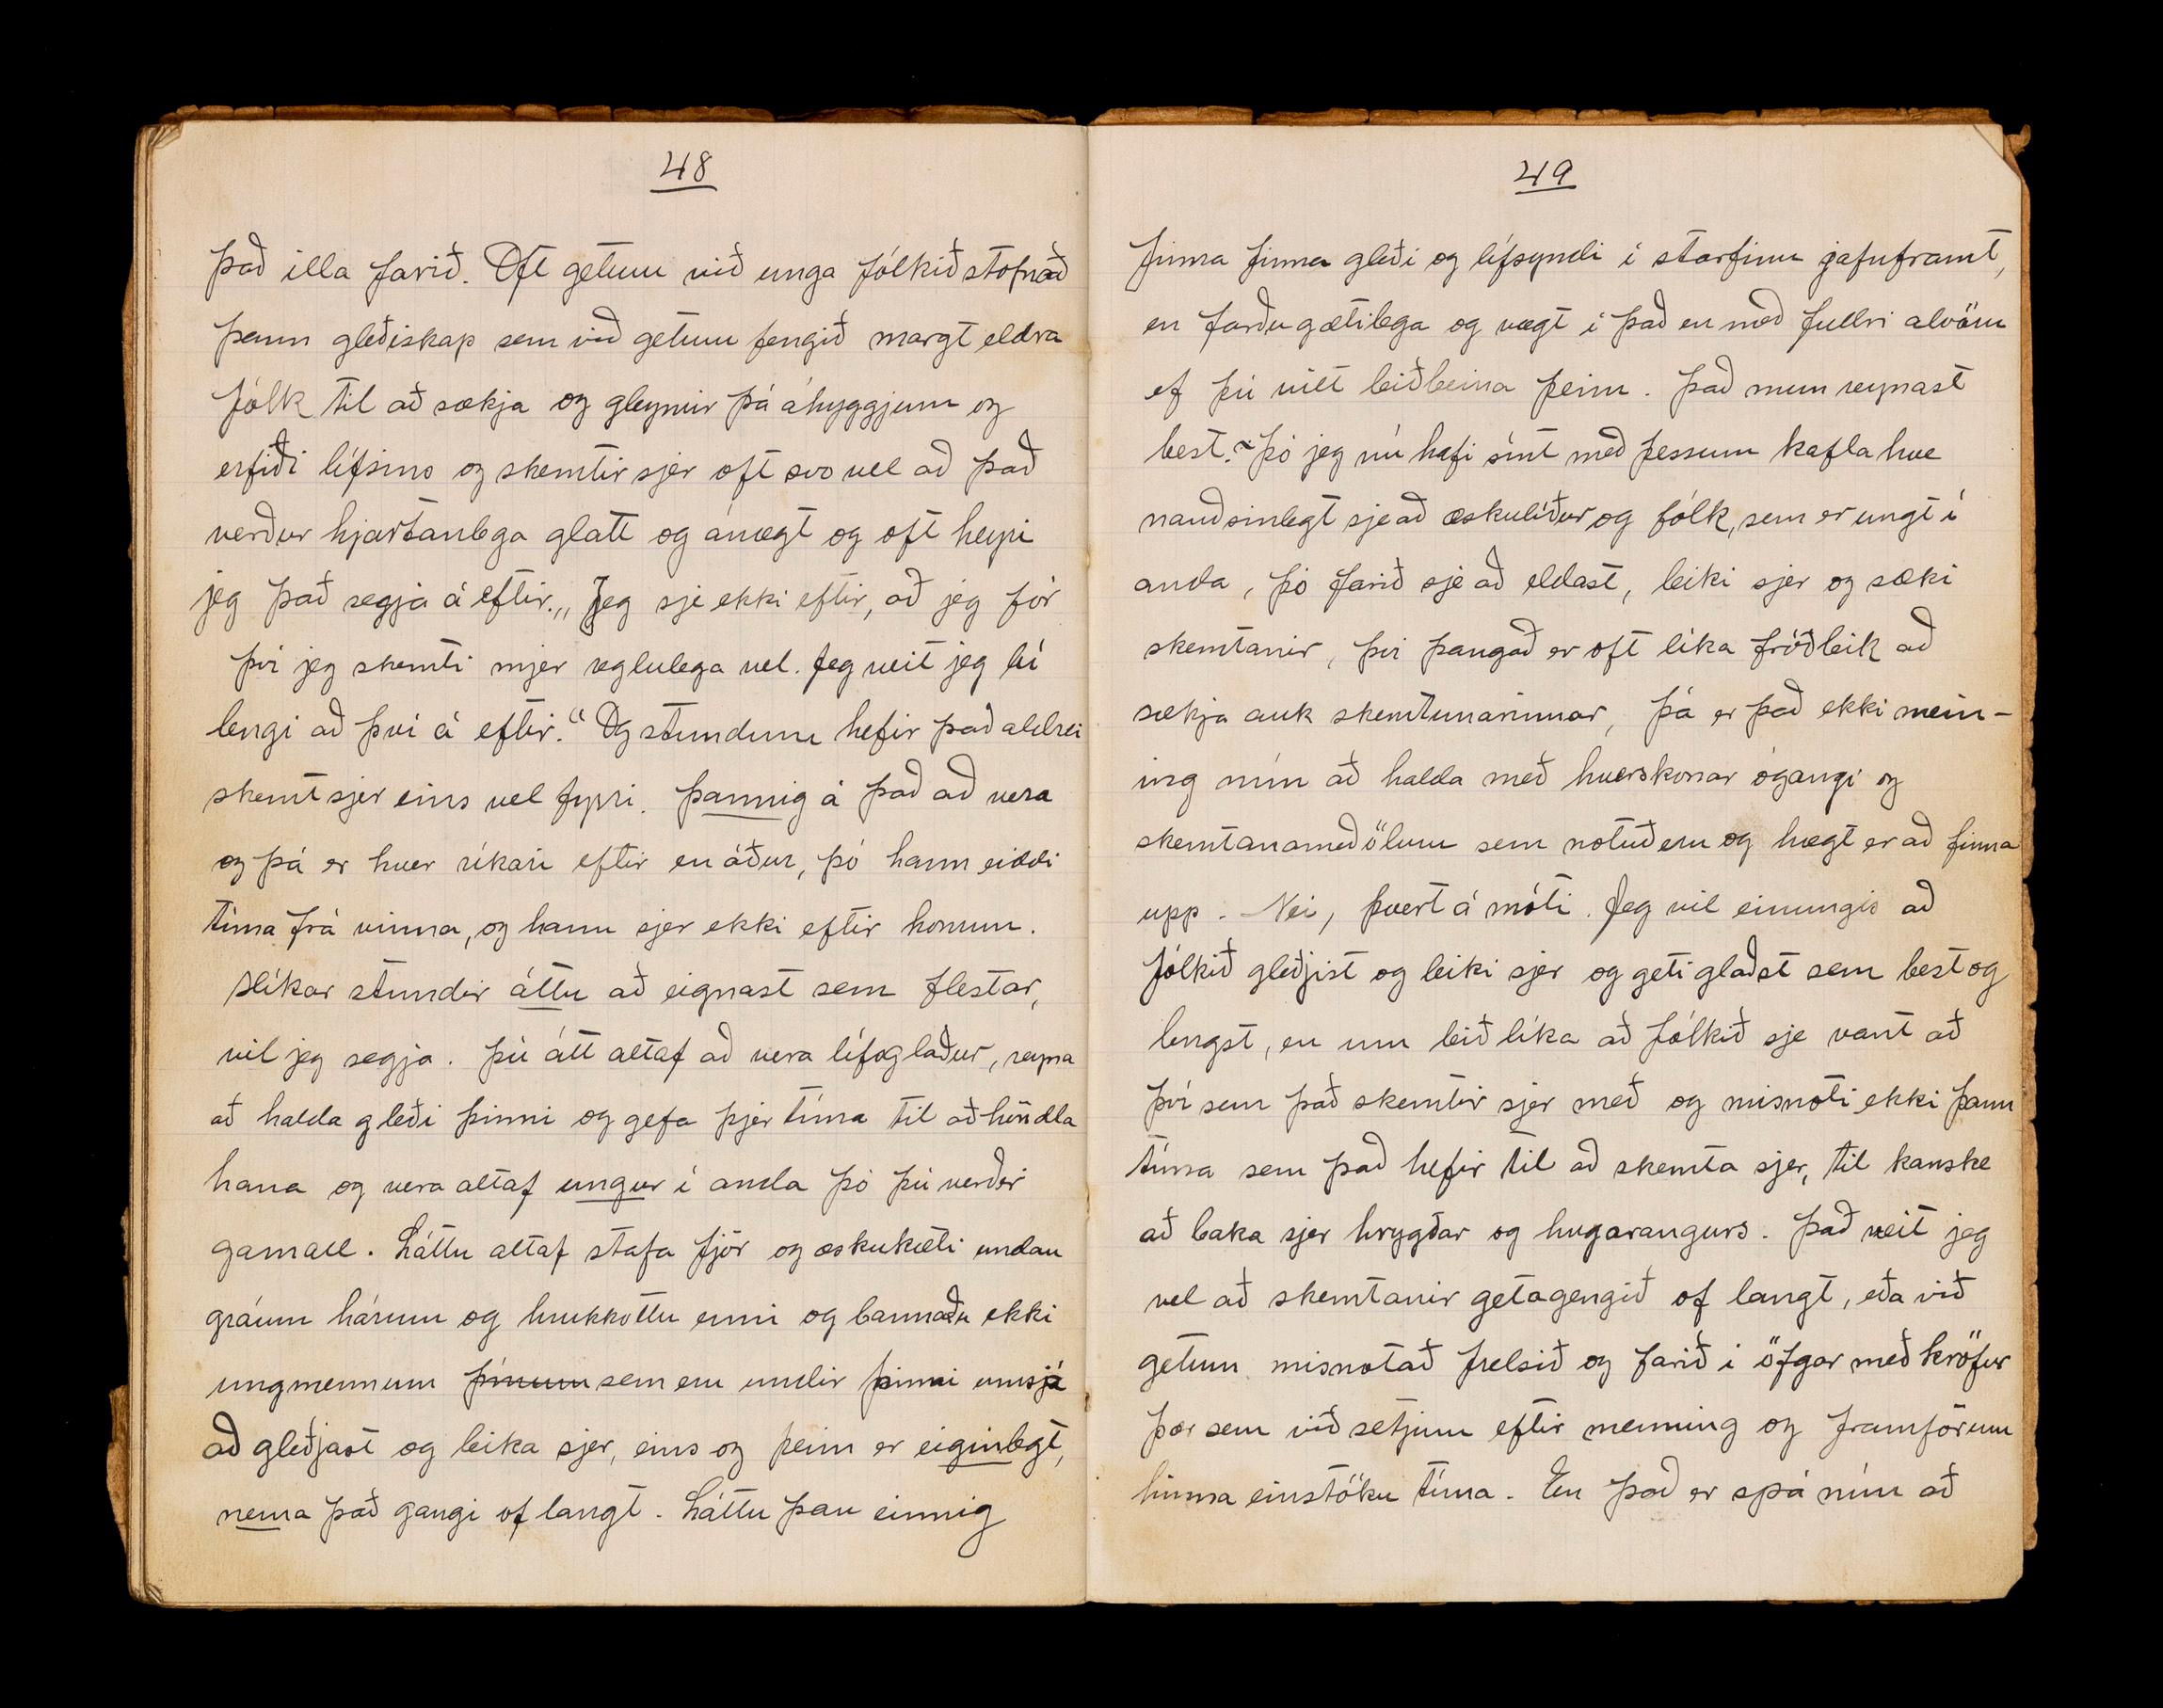 48
það illa farið. Oft getum við unga fólkið stofnað
þann gleðiskap sem við getum fengið margt eldra
fólk til að sækja og gleymir þá áhyggjum og
erfiði lífsins og skemtir sjer oft svo vel að það
verður hjartanlega glatt og ánægt og oft heyri
jeg það segja á eftir. „Jeg sje ekki eftir, að jeg fór
því jeg skemti mjer reglulega vel. Jeg veit jeg bí
lengi að því á eftir.“ Og stundum hefir það aldrei
skemt sjer eins vel fyrri. Þannig á það að vera
og þá er hver ríkari eftir en áður, þó hann eiddi
tíma frá vinna, og hann sjer ekki eftir honum.
Slíkar stundir áttu að eignast sem flestar,
vil jeg segja. Þú átt altaf að vera lífsglaður, reyna
að halda gleði þinni og gefa þjer tíma til að höndla
hana og vera altaf ungur í anda þó þú verðir
gamall. Láttu altaf stafa fjör og æskukæti undan
gráum hárum og hrukkottu enni og bannaðu ekki
ungmennum þínum sem eru undir þinni umsjá
að gleðjast og leika sjer, eins og þeim er eiginlegt,
nema það gangi of langt. Láttu þau einnig
49
finna finna gleði og lífsyndi í starfinu jafnframt,
en farðu gætilega og vægt í það en með fullri alvöru
ef þú vilt leiðbeina þeim. Það mun reynast
best. ~ Þó jeg nú hafi sínt með þessum kafla hve
nauðsinlegt sje að æskulíður og fólk, sem er ungt í
anda, þó farið sje að eldast, leiki sjer og sæki
skemtanir, því þangað er oft líka fróðleik að
sækja auk skemtunarinnar, þá er það ekki mein-
ing mín að halda með hverskonar ógangi og
skemtanameðölum sem notuð eru og hægt er að finna
upp. Nei, þvert á móti. Jeg vil einungis að
fólkið gleðjist og leiki sjer og geti glaðst sem best og
lengst, en um leið líka að fólkið sje vant að
því sem það skemtir sjer með og misnoti ekki þann
tíma sem það hefir til að skemta sjer, til kanske
að baka sjer hrygðar og hugarangurs. Það veit jeg
vel að skemtanir geta gengið of langt, eða við
getum misnotað frelsið og farið í öfgar með kröfur
þær sem við setjum eftir menning og framförum
hinna einstöku tíma. En það er spá mín að